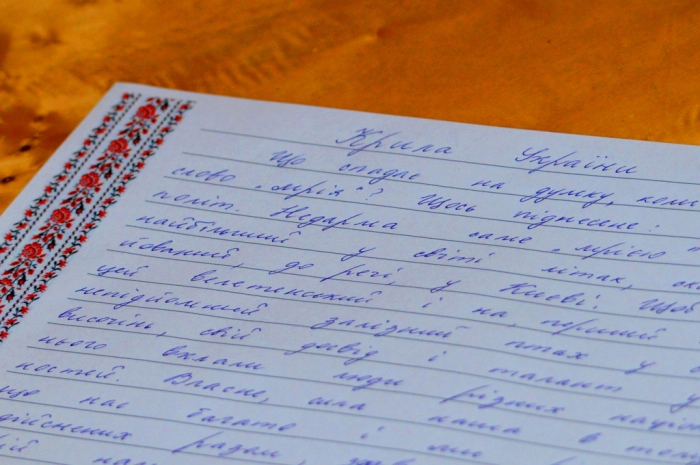 Крила України
Що спадає на думку, коли
слово „мрія“? Щось піднесене:
політ. Недарма саме „Мрією
найбільший у світі літак,
йований, до речі, у Києві. Щоб
цей велетенський і на перший
непідйомний залізний птах у
височінь, свій досвід і талант у
нього вклали люди різних
ностей. Власне, сила наша в
що нас багато і ми
разом,